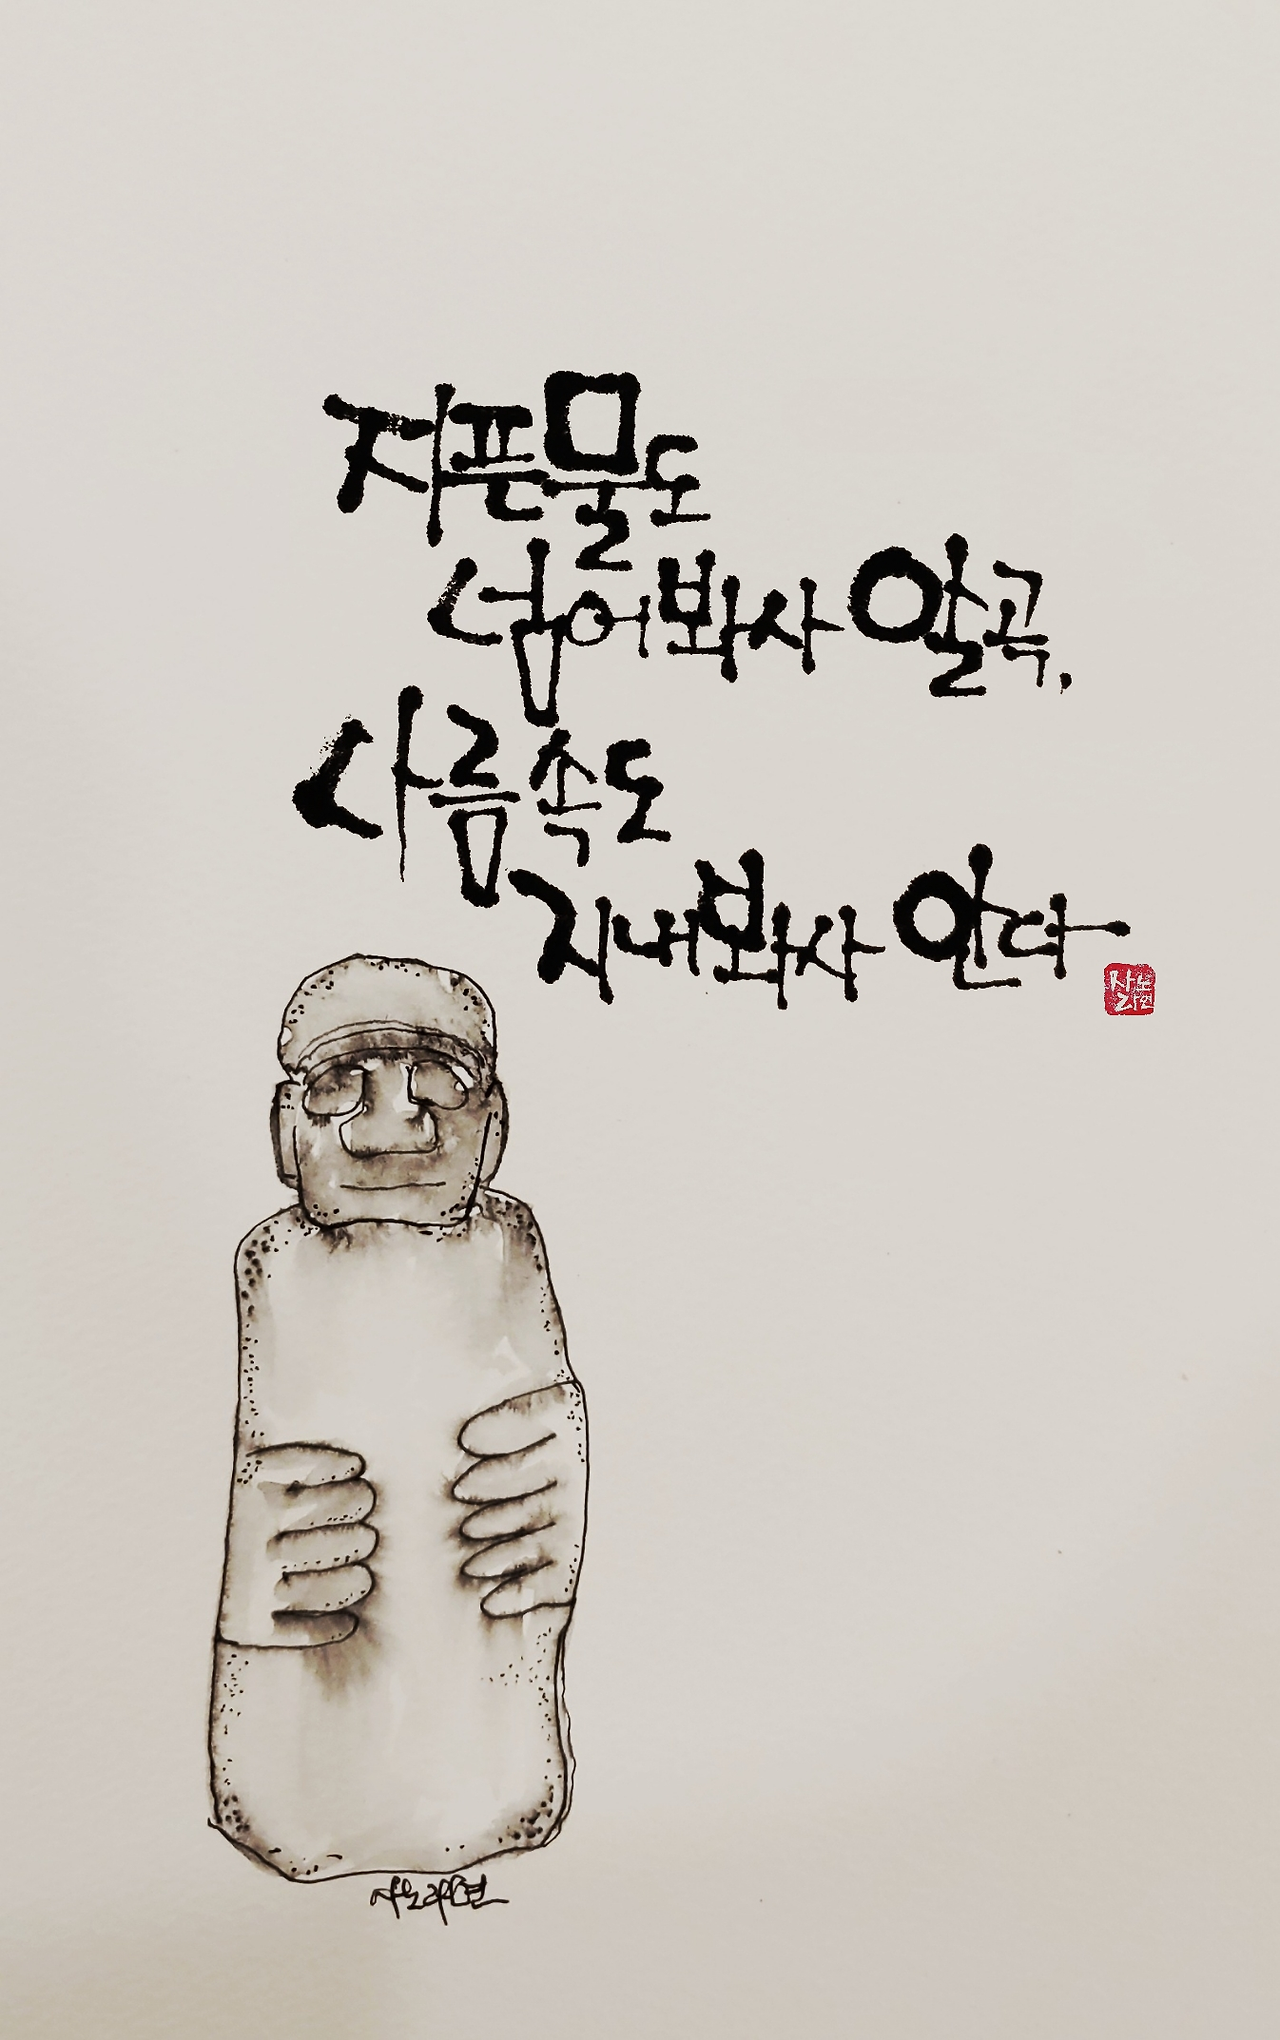 지픈물도
넘어봐사 알곡,
사름속도
지내봐사 안다